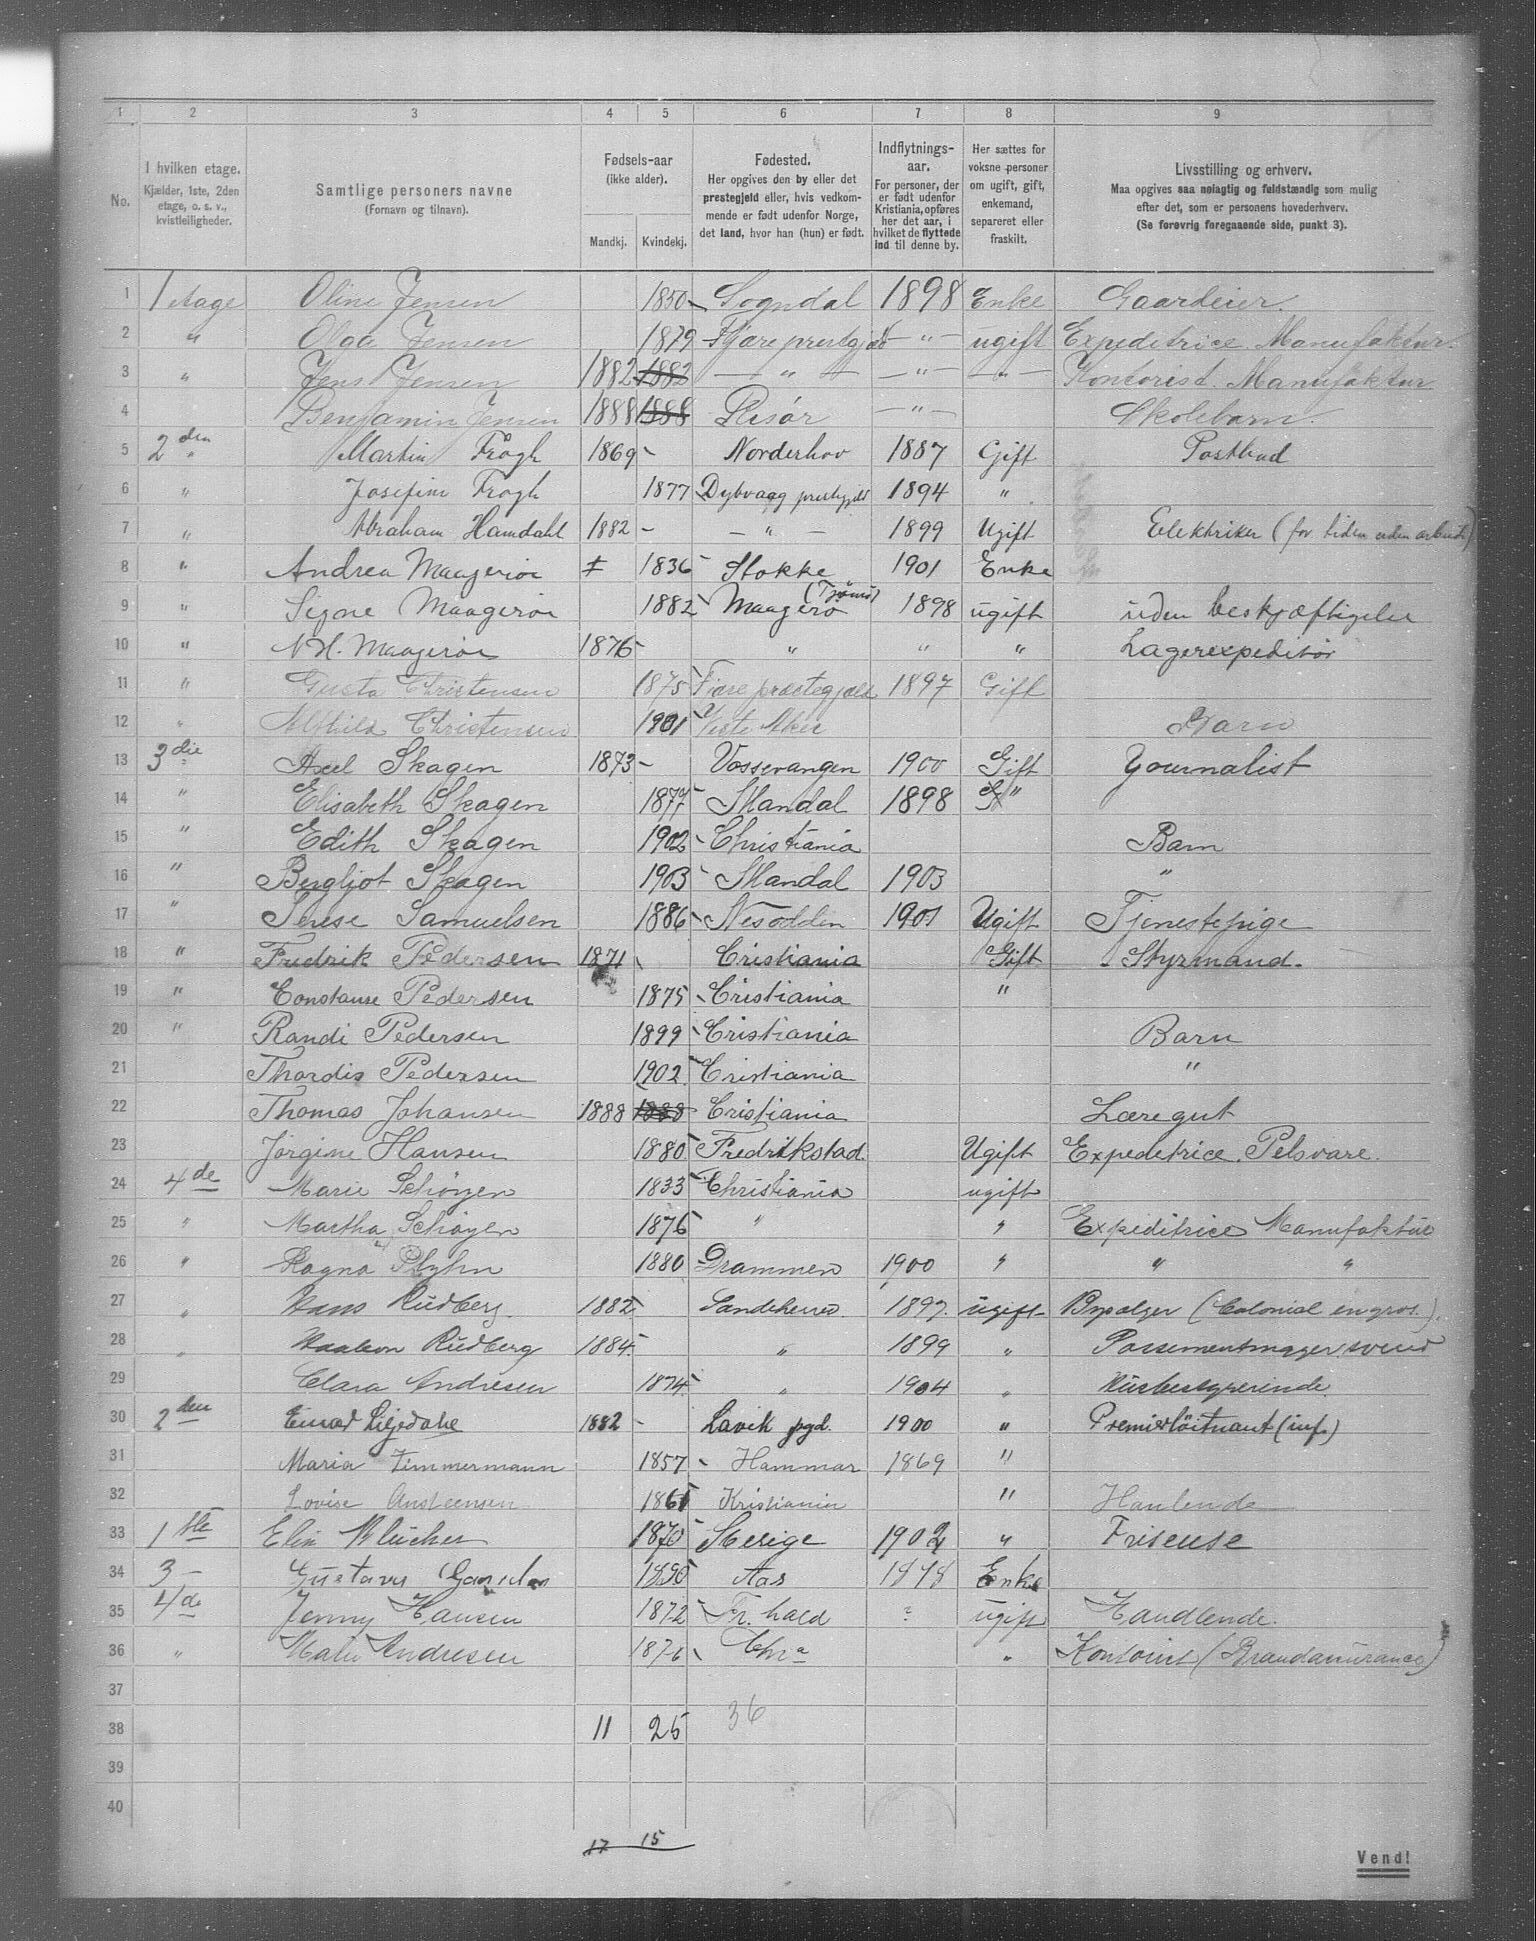 1 2 3 4 5 6 7 8 9
No.
I hvilken etage. Kjælder, 1ste, 2den etage, o. s. v., kvistleiligheder.
Samtlige personers navne (Fornavn og tilnavn).
Fødsels-aar (ikke alder). Mandkj. Kvindekj.
Fødested. Her opgives den by eller det prestegjeld eller, hvis vedkommende er født udenfor Norge, det land, hvor han (hun) er født.
Indflytnings-aar. For personer, der er født udenfor Kristiania, opføres her det aar, i hvilket de flyttede ind til denne by.
Her sættes for voksne personer om ugift, gift, enkemand, separeret eller fraskilt.
Livsstilling og erhverv. Maa opgives saa nøiagtig og fuldstændig som mulig efter det, som er personens hovederhverv. (Se forøvrig foregaaende side, punkt 3).
1 1 etage Oline Jensen 1850 Sogndal 1898 Enke Gaardeier.
2 " Olga Jensen 1879 Fjære prestgjæld — " — ugift Expeditrice Manufaktur.
3 " Jens Jensen 1882 1882 — " — — " — — " — Kontorist. Manufaktur
4 Benjamin Jensen 1888 1888 Risør — " — Skolebarn.
5 2 den " Martin Frogh 1869 - Norderhov 1887 Gift Postbud
6 " Josefine Frogh 1877 Dybvaag prestgjeld 1894 "
7 " Abraham Hamdahl 1882 - — " — 1899 Ugift Elektriker (for tiden uden arbeide)
8 " Andrea Maagerøe 1836 Stokke 1901 Enke
9 " Signe Maagerøe 1882 Maagerø (Tjømø) 1898 ugift uden beskjæftigelse
10 " N H. Maagerøe 1876 - " " " Lagerexpeditør
11 " Gusta Christensen 1875 Fjære præstegjæld 1897 Gift
12 " Alfhild Christensen 1901 Vestre Aker Barn
13 3 die Axel Skagen 1873 - Vossevangen 1900 Gift Journalist
14 " Elisabeth Skagen 1877 Mandal 1898 "
15 " Edith Skagen 1902 - Christiania Barn
16 " Bergljot Skagen 1903 - Mandal 1903 "
17 " Terese Samuelsen 1886 - Nesodden 1901 Ugift Tjenestepige
18 " Fredrik Pedersen 1871 - Cristiania Gift Styrmand.
19 " Constanse Pedersen 1875 - Cristiania "
20 " Randi Pedersen 1899 - Cristiania Barn
21 Thordis Pedersen 1902 Cristiania "
22 Thomas Johansen 1888 1888 Cristiania Læregut
23 Jørgine Hansen 1880 Fredrikstad. Ugift Expeditrice. Pelsvare.
24 4 de Marie Schøyen 1833 Christiania ugift
25 " Martha Schøyen 1876 " " Expeditrice Manufaktur
26 " Ragna Plyhn 1880 Drammen 1900 " " "
27 " Hans Rudberg. 1882 - Sandeherred 1897. ugift Bypasser (Colonial en gros.).
28 " Haakon Rudberg 1884 - " 1899 " Possementmager svend
29 Clara Andresen 1874 " 1904 " Husbestyrerinde
30 2 den Einar Liljedahl 1882 - Lavik pgd. 1900 " Premierløitnant (inf.)
31 Maria Timmermann 1857 - Hammar 1869 "
32 Lovise Ansteensen 1861 Kristiania " Hanlende
33 1 ste Elin 1870 Sverige 1902 " Friseuse
34 3 - Gustava 1850 Aas 1878 Enke
35 4 de Jenny Hansen 1872 Fr. hald ? ugift Handlende.
36 " Andresen 1876 - Chra " Kontorist (Brandassurance)
37
38 11 25 36
39
40
17 15
Vend!